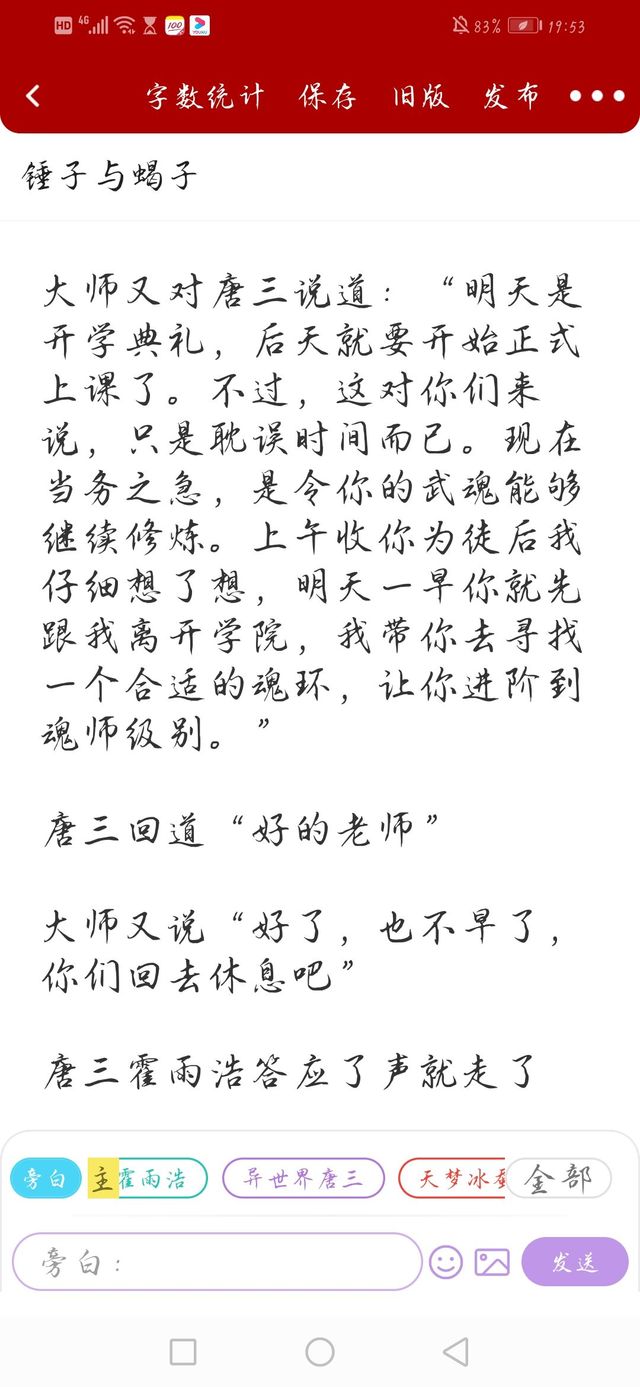 HD 4G 100 YOUKU 83% 19:53
字数统计 保存 旧版 发布
锤子与蝎子
大师又对唐三说道：“明天是
开学典礼，后天就要开始正式
上课了。不过，这对你们来
说，只是耽误时间而已。现在
当务之急，是令你的武魂能够
继续修炼。上午收你为徒后我
仔细想了想，明天一早你就先
跟我离开学院，我带你去寻找
一个合适的魂环，让你进阶到
魂师级别。”
唐三回道“好的老师”
大师又说“好了，也不早了，
你们回去休息吧”
唐三霍雨浩答应了声就走了
旁白 主 霍雨浩 异世界唐三 天梦冰 全部
旁白： 发送